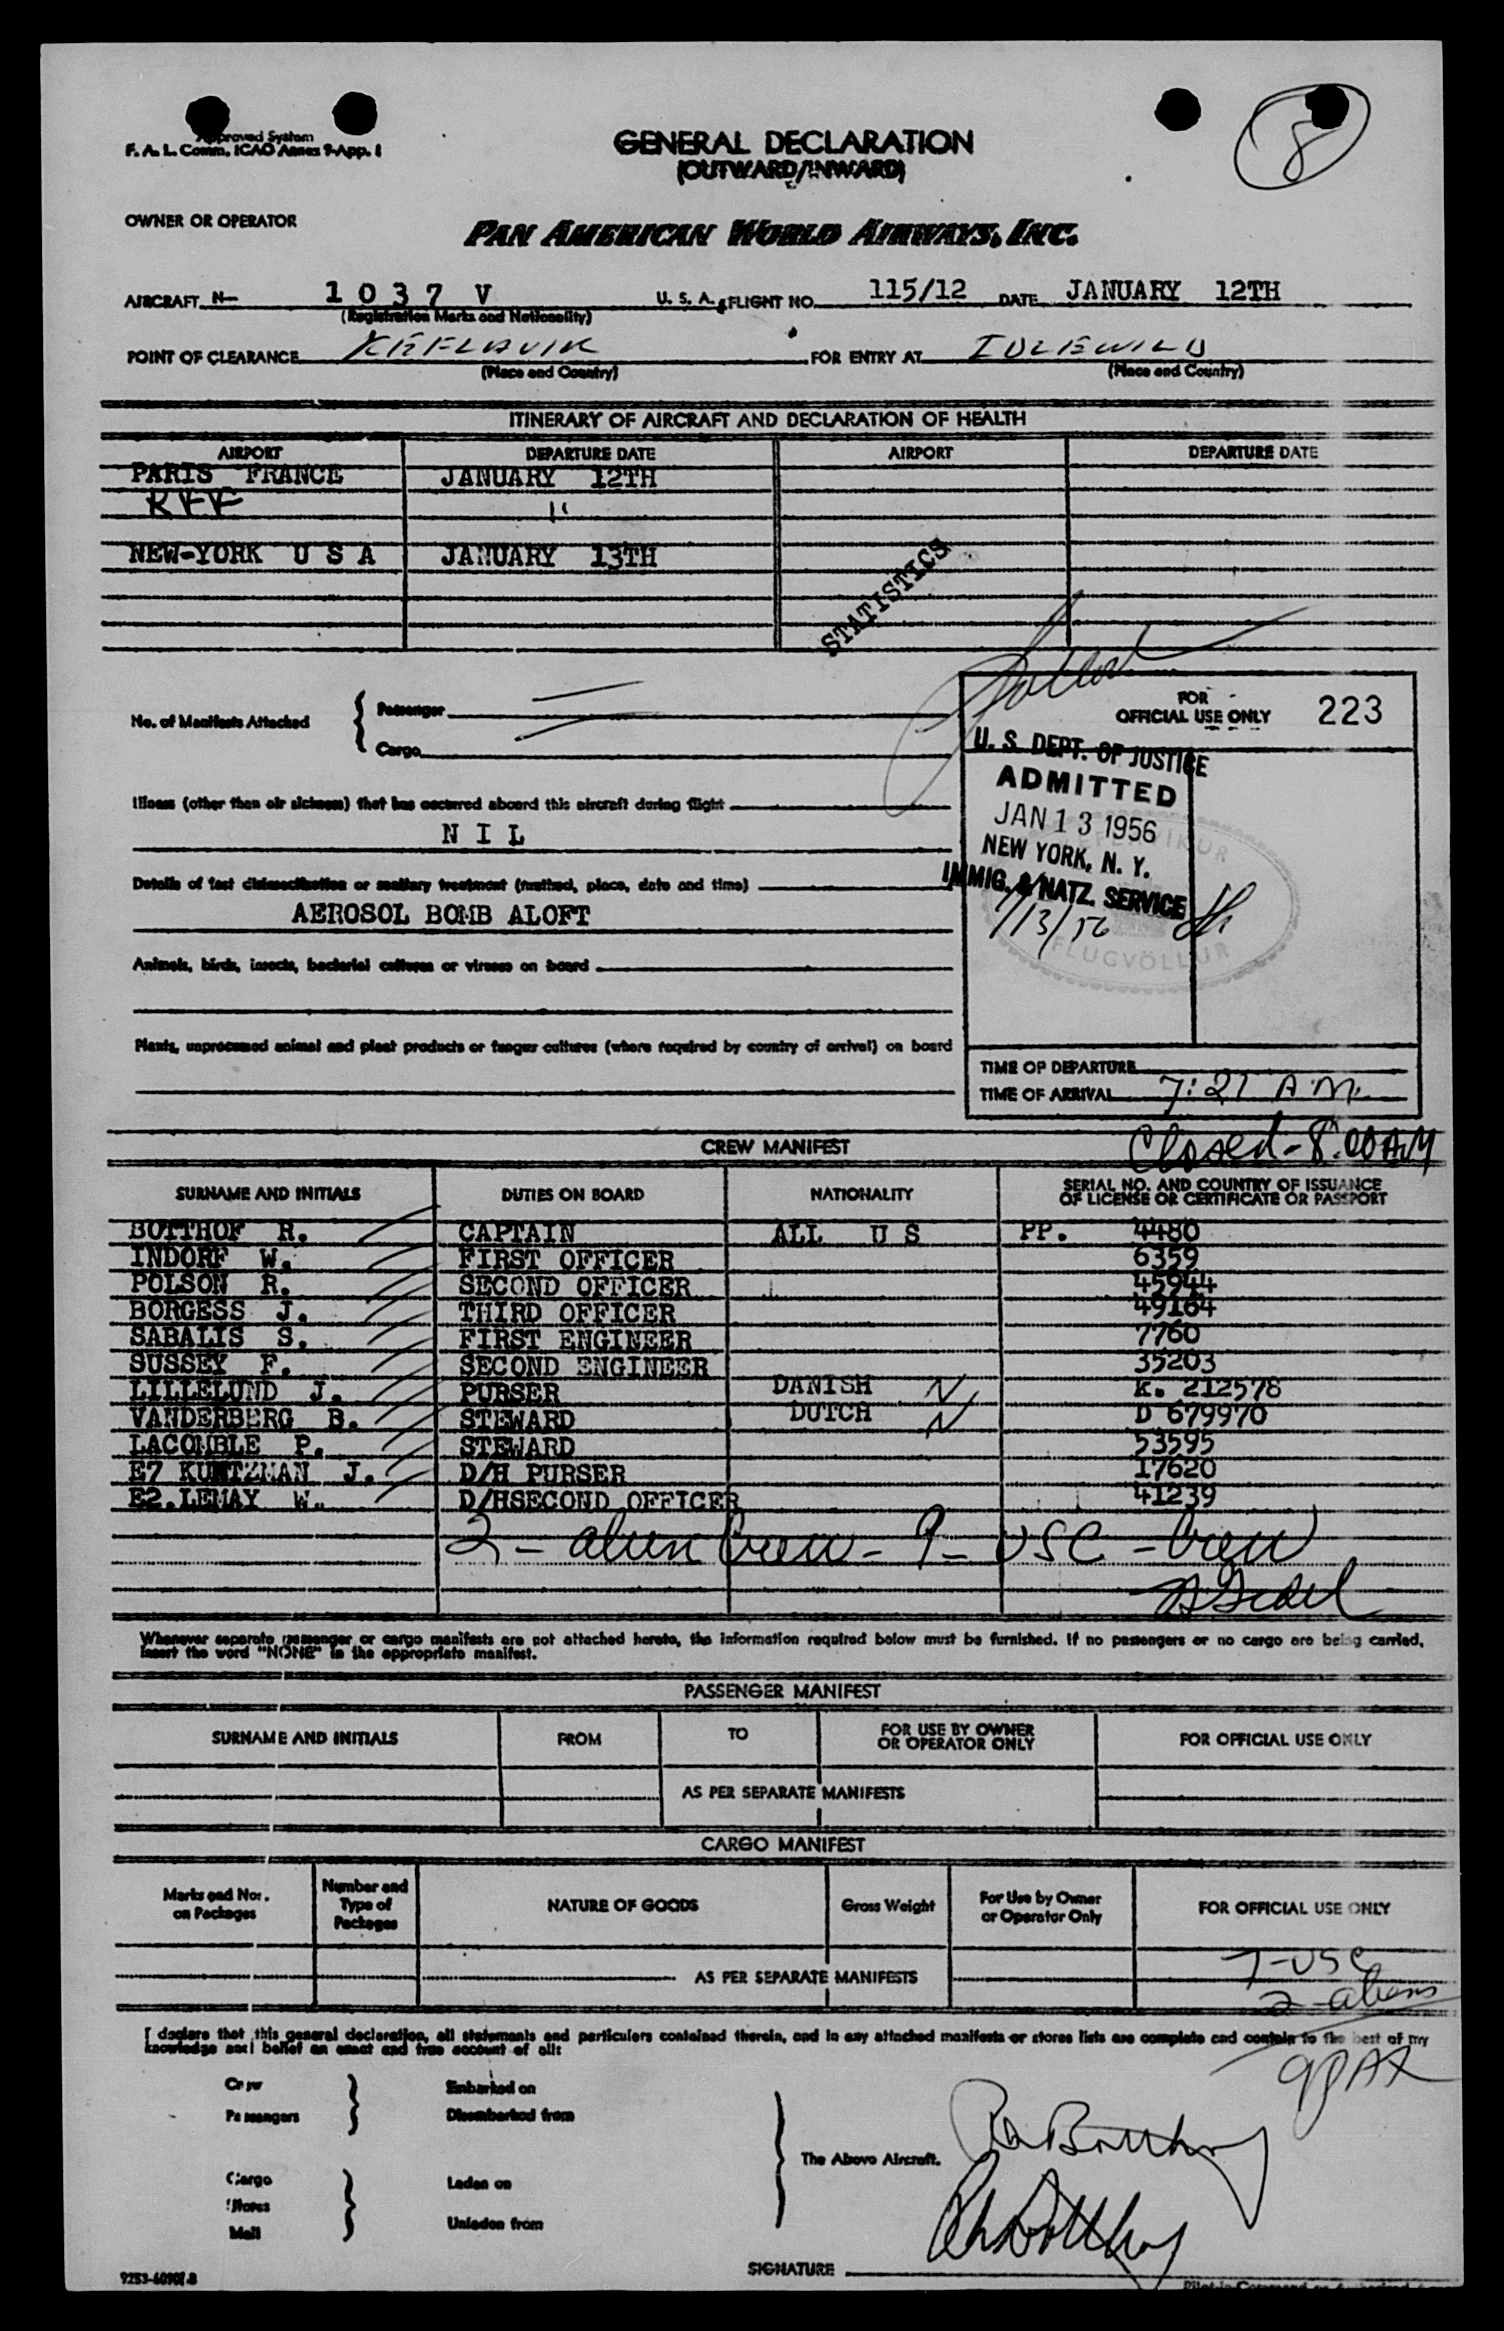 8
Approved System
F. A. L. Comm. ICAO Annex 9-App. 1
GENERAL DECLARATION
(OUTWARD/INWARD)
OWNER OR OPERATOR
PAN AMERICAN WORLD AIRWAYS, INC.
AIRCRAFT N- 1 0 3 7 V U. S. A. FLIGHT NO. 115/12 DATE JANUARY 12TH
(Registration Marks and Nationality)
POINT OF CLEARANCE KEFLAVIK FOR ENTRY AT IDLEWILD
(Place and Country) (Place and Country)
ITINERARY OF AIRCRAFT AND DECLARATION OF HEALTH
AIRPORT DEPARTURE DATE AIRPORT DEPARTURE DATE
PARIS FRANCE JANUARY 12TH
KEF "
NEW-YORK U S A JANUARY 13TH
STATISTICS
No. of Manifests Attached
Passenger
Cargo
FOR OFFICIAL USE ONLY 223
U. S. DEPT. OF JUSTICE
ADMITTED
JAN 13 1956
NEW YORK, N. Y.
IMMIG. & NATZ. SERVICE
1/13/56
FLUGVÖLLUR
Illness (other than air sickness) that has occurred aboard this aircraft during flight
N I L
Details of last disinsectization or sanitary treatment (method, place, date and time)
AEROSOL BOMB ALOFT
Animals, birds, insects, bacterial cultures or viruses on board
Plants, unprocessed animal and plant products or fungus cultures (where required by country of arrival) on board
TIME OF DEPARTURE
TIME OF ARRIVAL 7:21 A.M.
Closed - 8:00 AM
CREW MANIFEST
SURNAME AND INITIALS DUTIES ON BOARD NATIONALITY SERIAL NO. AND COUNTRY OF ISSUANCE OF LICENSE OR CERTIFICATE OR PASSPORT
BOTTHOF R. CAPTAIN ALL U S PP. 4480
INDORF W. FIRST OFFICER 6359
POLSON R. SECOND OFFICER 45944
BORGESS J. THIRD OFFICER 49164
SABALIS S. FIRST ENGINEER 7760
SUSSEY F. SECOND ENGINEER 35203
LILLELUND J. PURSER DANISH N K. 212578
VANDERBERG B. STEWARD DUTCH N D 679970
LACOMBLE P. STEWARD 53595
E7 KUNTZMAN J. D/H PURSER 17620
E2.LEMAY W. D/HSECOND OFFICER 41239
2 - alien Crew - 9 - USC - Crew
Whenever separate passenger or cargo manifests are not attached hereto, the information required below must be furnished. If no passengers or no cargo are being carried,
insert the word "NONE" in the appropriate manifest.
PASSENGER MANIFEST
SURNAME AND INITIALS FROM TO FOR USE BY OWNER OR OPERATOR ONLY FOR OFFICIAL USE ONLY
AS PER SEPARATE MANIFESTS
CARGO MANIFEST
Marks and Nos. on Packages Number and Type of Packages NATURE OF GOODS Gross Weight For Use by Owner or Operator Only FOR OFFICIAL USE ONLY
AS PER SEPARATE MANIFESTS
7-USC
2 - aliens
9 PAX
I declare that this general declaration, all statements and particulars contained therein, and in any attached manifests or stores lists are complete and contain to the best of my
knowledge and belief an exact and true account of all:
Crew Embarked on
Passengers Disembarked from
The Above Aircraft.
Cargo Laden on
Stores
Mail Unladen from
SIGNATURE